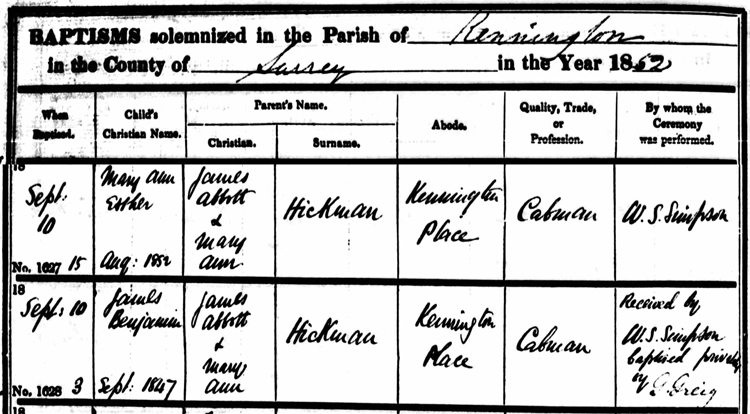 BAPTISMS solemnized in the Parish of Kennington
in the County of Surrey in the Year 1852
When Baptised.
Child's Christian Name.
Parent's Name.
Christian.
Surname.
Abode.
Quality, Trade, or Profession.
By whom the Ceremony was performed.
18
Sept: 10
No. 1627
Mary Ann
Esther
15 Aug: 1852
James
Abbott
&
Mary
Ann
Hickman
Kennington
Place
Cabman
W. S. Simpson
18
Sept: 10
No. 1628
James
Benjamin
3 Sept: 1847
James
Abbott
&
Mary
Ann
Hickman
Kennington
Place
Cabman
Received by
W. S. Simpson
baptised privately
by G. Greig
18